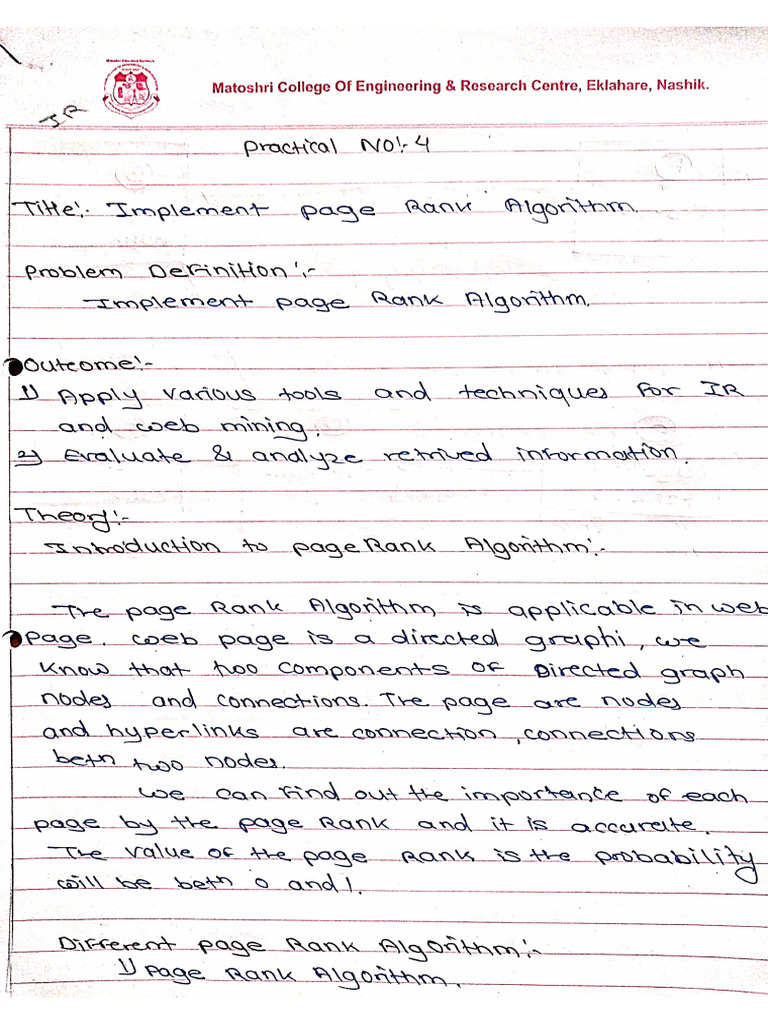 Matoshri College Of Engineering & Research Centre, Eklahare, Nashik.
IR
Practical No:- 4
Title:- Implement page Rank Algorithm.
Problem Definition:-
Implement page Rank Algorithm.
Outcome:-
1) Apply various tools and techniques for IR
and web mining.
2) Evaluate & analyze retrived information.
Theory:-
Introduction to page Rank Algorithm:-
The page Rank Algorithm is applicable in web
page. web page is a directed graphi, we
know that two components of Directed graph
nodes and connections. The page are nodes
and hyperlinks are connection, connections
betn two nodes.
we can find out the importance of each
page by the page Rank and it is accurate.
The value of the page Rank is the probability
will be betn 0 and 1.
Different page Rank Algorithm:-
1) Page Rank Algorithm.